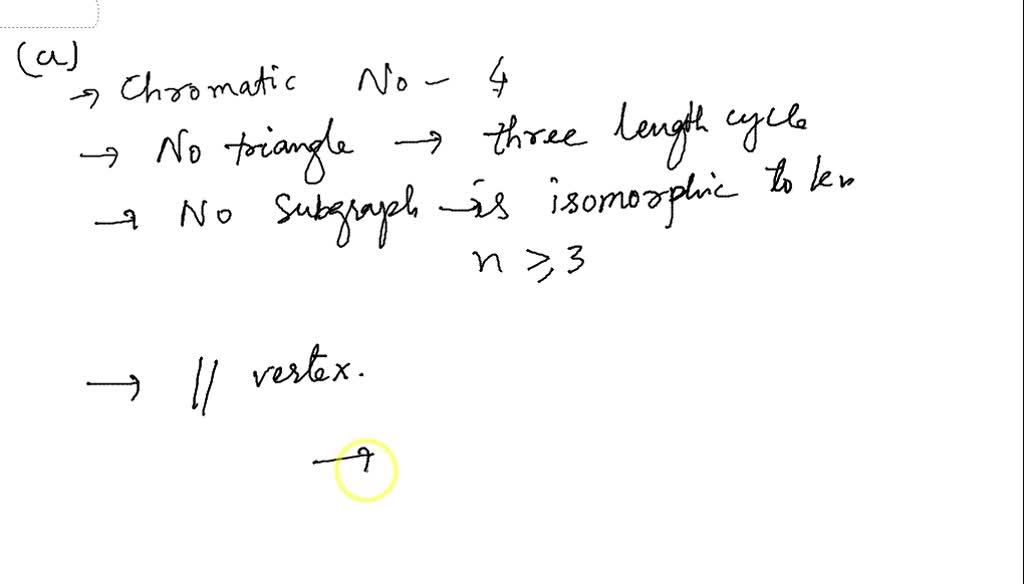 (a)
→ Chromatic No - 4
→ No triangle → three length cycle
→ No Subgraph → is isomorphic to kn
n ≥ 3
→ 11 vertex.
→